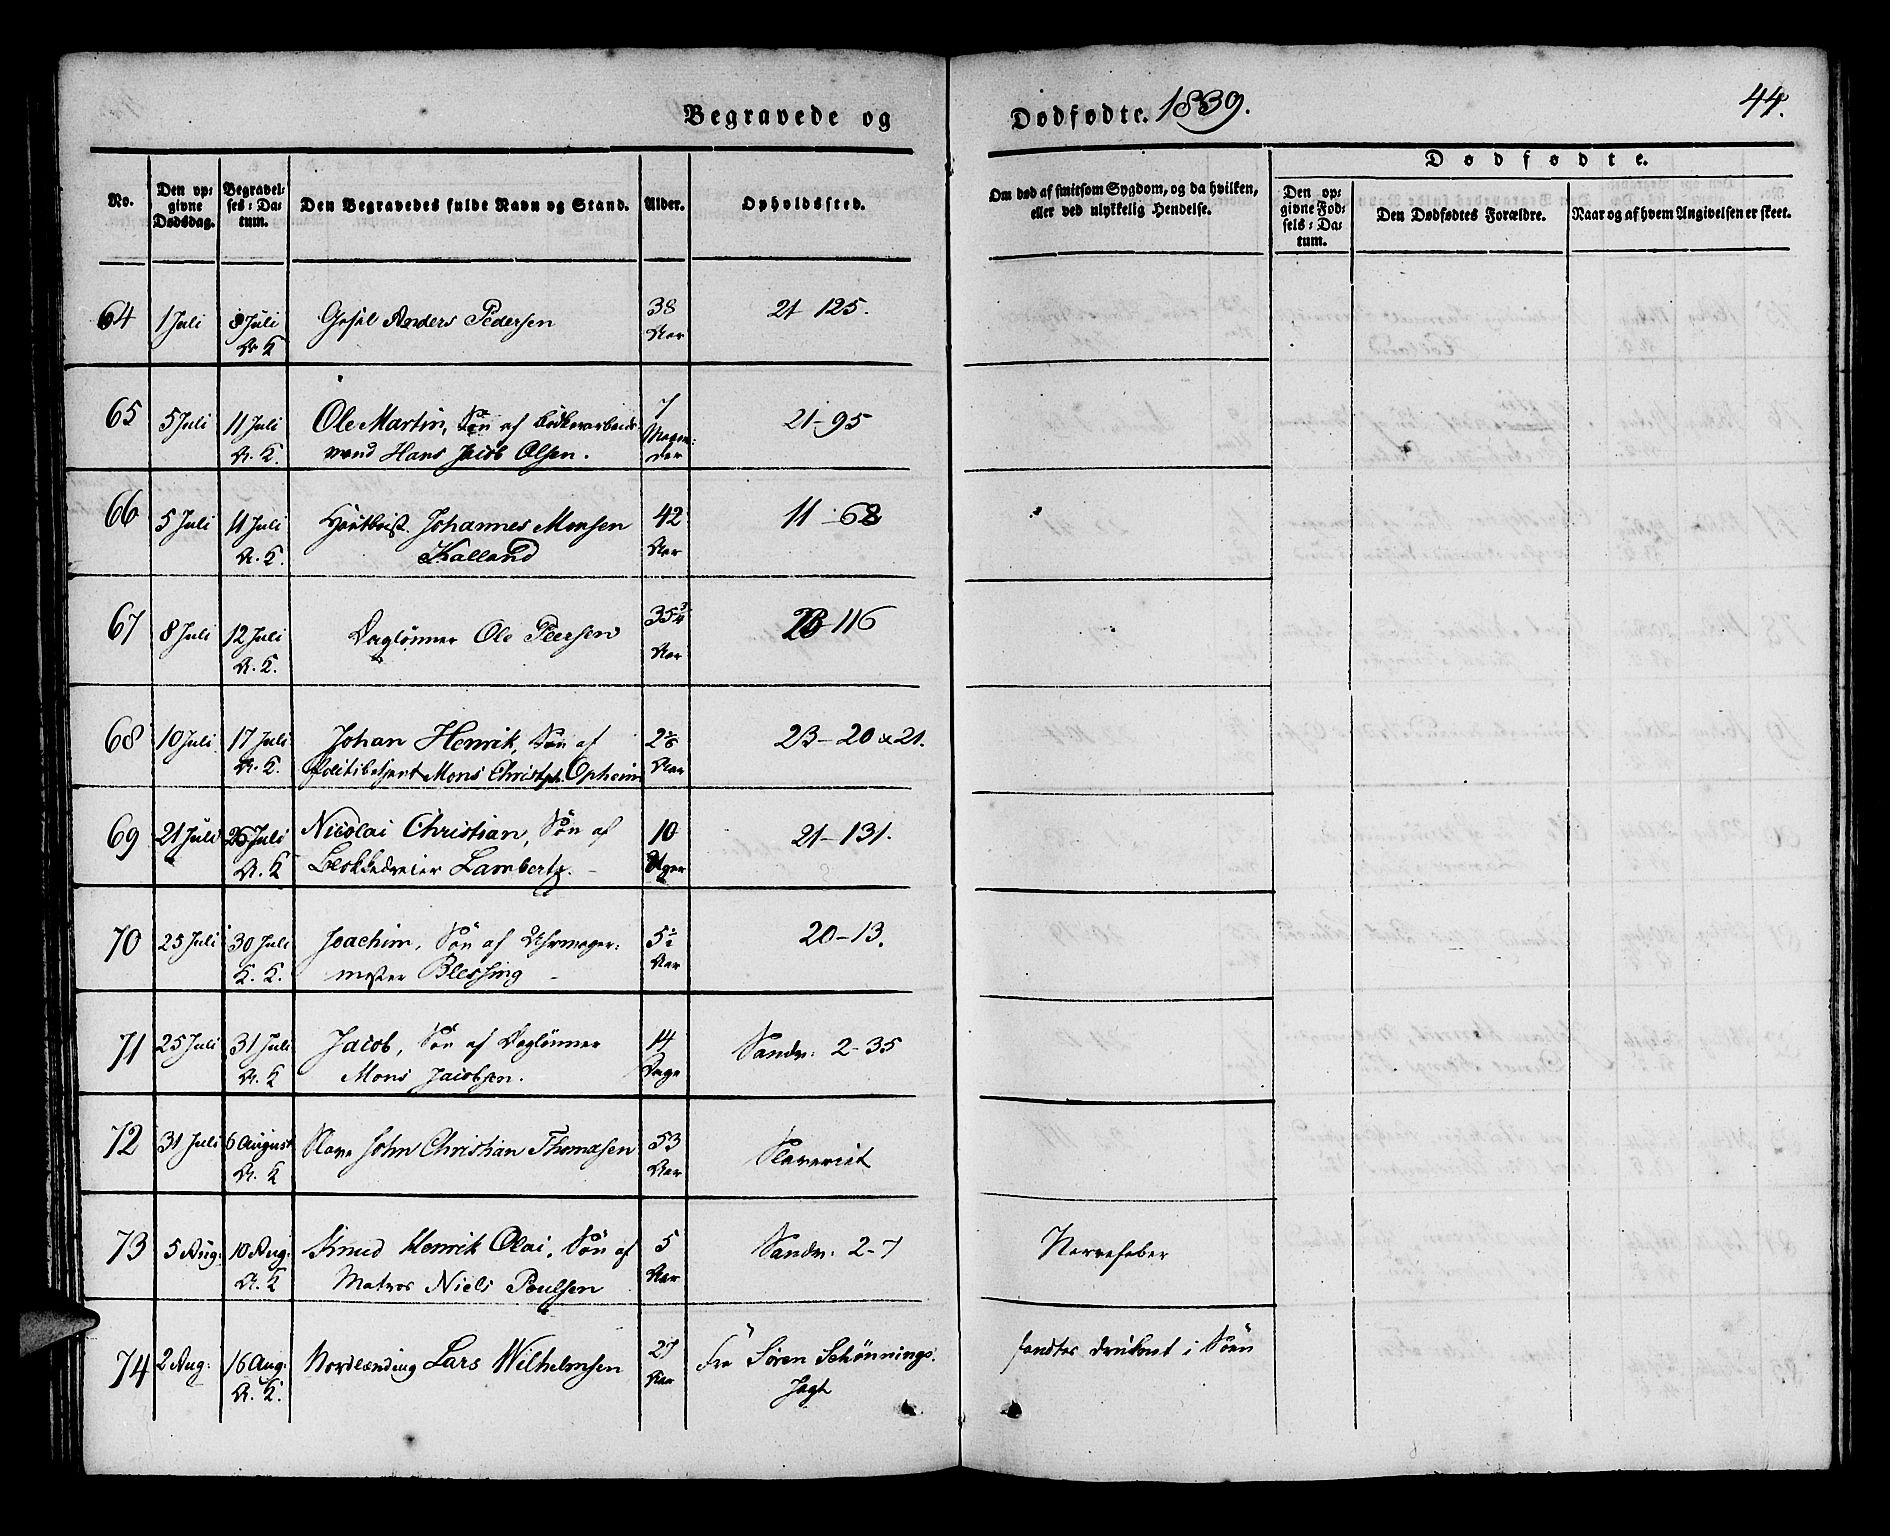 Begravede og
Dødfødte. 1839.
44.
No.
Den op-
givne
Dødsdag.
Begravel-
ses-Da-
tum.
Den Begravedes fulde Navn og Stand.
Alder.
Opholdssted.
Om død af smitsom Sygdom, og da hvilken,
eller ved ulykkelig Hendelse.
Dødfødte.
Den op-
givne Fød-
sels-Da-
tum.
Den Dødfødtes Forældre.
Naar og af hvem Angivelsen er skeet.
64 1 Juli 8 Juli Anders Pedersen 38 21 125.
Aar
65 5 Juli 11 Juli Ole Martin, Søn af 7 21-95
mand Hans Jacob Olsen. Maane-
der
66 5 Juli 11 Juli Johannes Monsen 42 11-68
Kalland Aar
67 8 Juli 12 Juli Daglønner Ole Peersen 35 3/4 116
Aar
68 10 Juli 17 Juli Johan Henrik, Søn af 23-20 & 21.
Politibetjent Mons Christoph. Opheim Aar
69 21 Juli 26 Juli Nicolai Christian, Søn af 10 21-131.
Blokkedreier Lambertz. Uger
70 25 Juli 30 Juli Joachim, Søn af Uhrmager- 5 1/2 20-13.
K. K. mester Blessing Aar
71 25 Juli 31 Juli Jacob, Søn af Daglønner 14 Sandv: 2-35
Mons Jacobsen. Dage
72 31 Juli 6 August Slave John Christian Thomasen 53 Slaveriet
Aar
73 5 Aug: 10 Aug: Knud Henrik Olai, Søn af 5 Sandv: 2-7 Nervefeber
Matros Niels Poulsen Aar
74 2 Aug: 16 Aug: Nordlænding Lars Wilhelmsen 27 Fra Sören Schönnings fandtes druknet i Søen
Aar Jagt